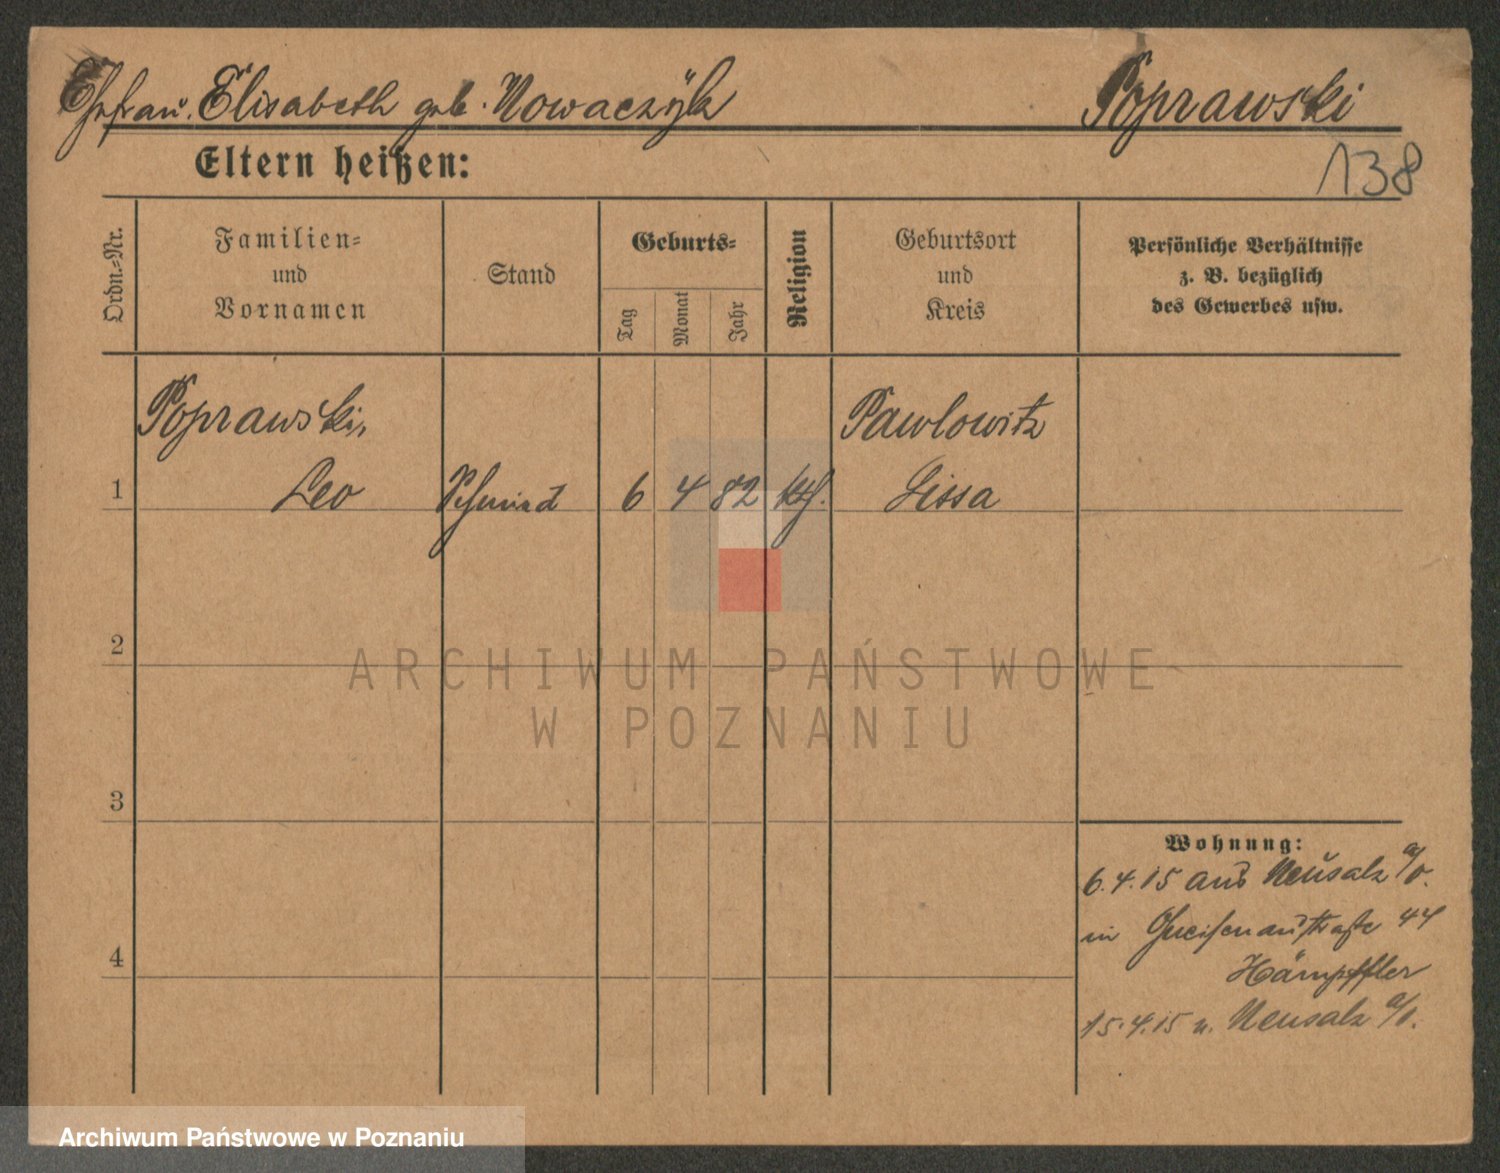 Ehefrau. Elisabeth geb. Nowaczÿk Poprawski
Eltern heißen:
138
Ordn.-Nr.
Familien-
und
Vornamen
Stand
Geburts-
Tag
Monat
Jahr
Religion
Geburtsort
und
Kreis
Persönliche Verhältnisse
z. B. bezüglich
des Gewerbes usw.
Poprawski, Pawlowitz
1 Leo Schmied 6 4 82 kth. Lissa
2
3
4
Wohnung:
6.4.15 aus Neusalz a/O.
in Gneisenaustraße 44
Hämpffler
15.4.15 n. Neusalz a/O.
ARCHIWUM PAŃSTWOWE
W POZNANIU
Archiwum Państwowe w Poznaniu